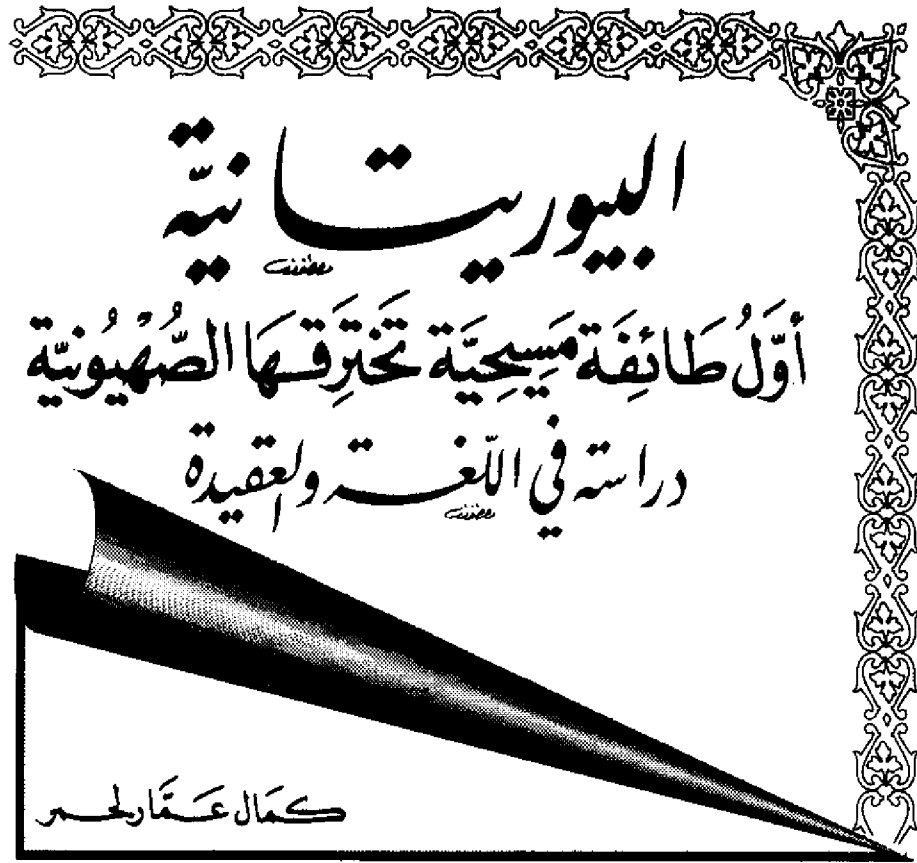 البيوريتانية
أوَّلُ طَائِفَة مَسِيحِيَّة تَخْتَرِقُهَا الصُّهْيُونيّة
دراسة في اللّغة والعقيدة
كمَال عَمَّار لحمر